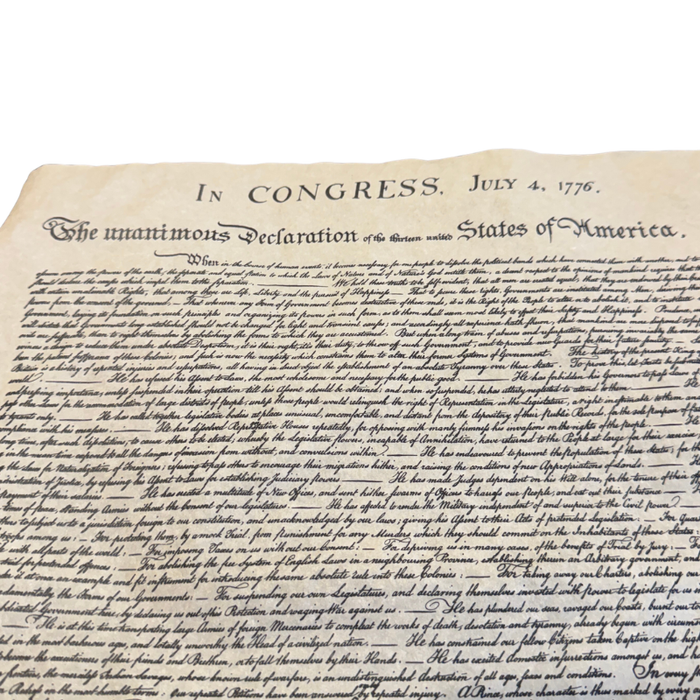 IN CONGRESS, JULY 4, 1776.
The unanimous Declaration of the thirteen united States of America.
When in the Course of human events it becomes necessary for one people to dissolve the political bands which have connected them with another, and to
among the Powers of the earth, the separate and equal station to which the Laws of Nature and of Nature's God entitle them, a decent respect to the opinions of mankind requires that
should declare the causes which impel them to the separation. — We hold these truths to be self-evident, that all men are created equal, that they are endowed by
with certain unalienable Rights, that among these are Life, Liberty and the pursuit of Happiness.— That to secure these rights, Governments are instituted among Men, deriving
powers from the consent of the governed,— That whenever any Form of Government becomes destructive of these ends, it is the Right of the People to alter or to abolish it, and to institute
Government, laying its foundation on such principles and organizing its powers in such form, as to them shall seem most likely to effect their Safety and Happiness.
will dictate that Governments long established should not be changed for light and transient causes; and accordingly all experience hath
are sufferable, than to right themselves by abolishing the forms to which they are accustomed. But when a long train of abuses and usurpations, pursuing invariably the
a design to reduce them under absolute Despotism, it is their right, it is their duty, to throw off such Government, and to provide new Guards for their future security.—
been the patient sufferance of these Colonies; and such is now the necessity which constrains them to alter their former Systems of Government. The history of the present King
Britain is a history of repeated injuries and usurpations, all having in direct object the establishment of an absolute Tyranny over these States. To prove this, let Facts be
world. — He has refused his Assent to Laws, the most wholesome and necessary for the public good. — He has forbidden his Governors to pass Laws of
and pressing importance, unless suspended in their operation till his Assent should be obtained; and when so suspended, he has utterly neglected to attend to them. —
for the accommodation of large districts of people, unless those people would relinquish the right of Representation in the Legislature, a right inestimable to them and
tyrants only. — He has called together legislative bodies at places unusual, uncomfortable, and distant from the depository of their Public Records, for the sole purpose of
compliance with his measures. — He has dissolved Representative Houses repeatedly, for opposing with manly firmness his invasions on the rights of the people. — He
long time, after such dissolutions, to cause others to be elected; whereby the Legislative powers, incapable of Annihilation, have returned to the People at large for their exercise
in the mean time exposed to all the dangers of invasion from without, and convulsions within. — He has endeavoured to prevent the Population of these States; for
the Laws for Naturalization of Foreigners; refusing to pass others to encourage their migrations hither, and raising the conditions of new Appropriations of Lands. —
Administration of Justice, by refusing his Assent to Laws for establishing Judiciary powers. — He has made Judges dependent on his Will alone, for the tenure of their
payment of their salaries. — He has erected a multitude of New Offices, and sent hither swarms of Officers to harrass our People, and eat out their substance. —
times of peace, Standing Armies without the Consent of our legislature. — He has affected to render the Military independent of and superior to the Civil power. —
others to subject us to a jurisdiction foreign to our constitution, and unacknowledged by our laws; giving his Assent to their Acts of pretended Legislation: — For
troops among us: — For protecting them, by a mock Trial, from punishment for any Murders which they should commit on the Inhabitants of these States: —
with all parts of the world: — For imposing Taxes on us without our Consent: — For depriving us in many cases, of the benefits of Trial by Jury: — For
tried for pretended offences: — For abolishing the free System of English Laws in a neighbouring Province, establishing therein an Arbitrary government, and
render it at once an example and fit instrument for introducing the same absolute rule into these Colonies: — For taking away our Charters, abolishing our
fundamentally the Forms of our Governments: — For suspending our own Legislatures, and declaring themselves invested with power to legislate for us in
abdicated Government here, by declaring us out of his Protection and waging War against us. — He has plundered our seas, ravaged our Coasts, burnt our
He is at this time transporting large Armies of foreign Mercenaries to compleat the works of death, desolation and tyranny, already begun with circumstances
in the most barbarous ages, and totally unworthy the Head of a civilized nation. — He has constrained our fellow Citizens taken Captive on the high
become the executioners of their friends and Brethren, or to fall themselves by their Hands. — He has excited domestic insurrections amongst us, and ha
frontiers, the merciless Indian Savages, whose known rule of warfare, is an undistinguished destruction of all ages, sexes and conditions. In every
Redress in the most humble terms: Our repeated Petitions have been answered by repeated injury. A Prince, whose character is thus marked by